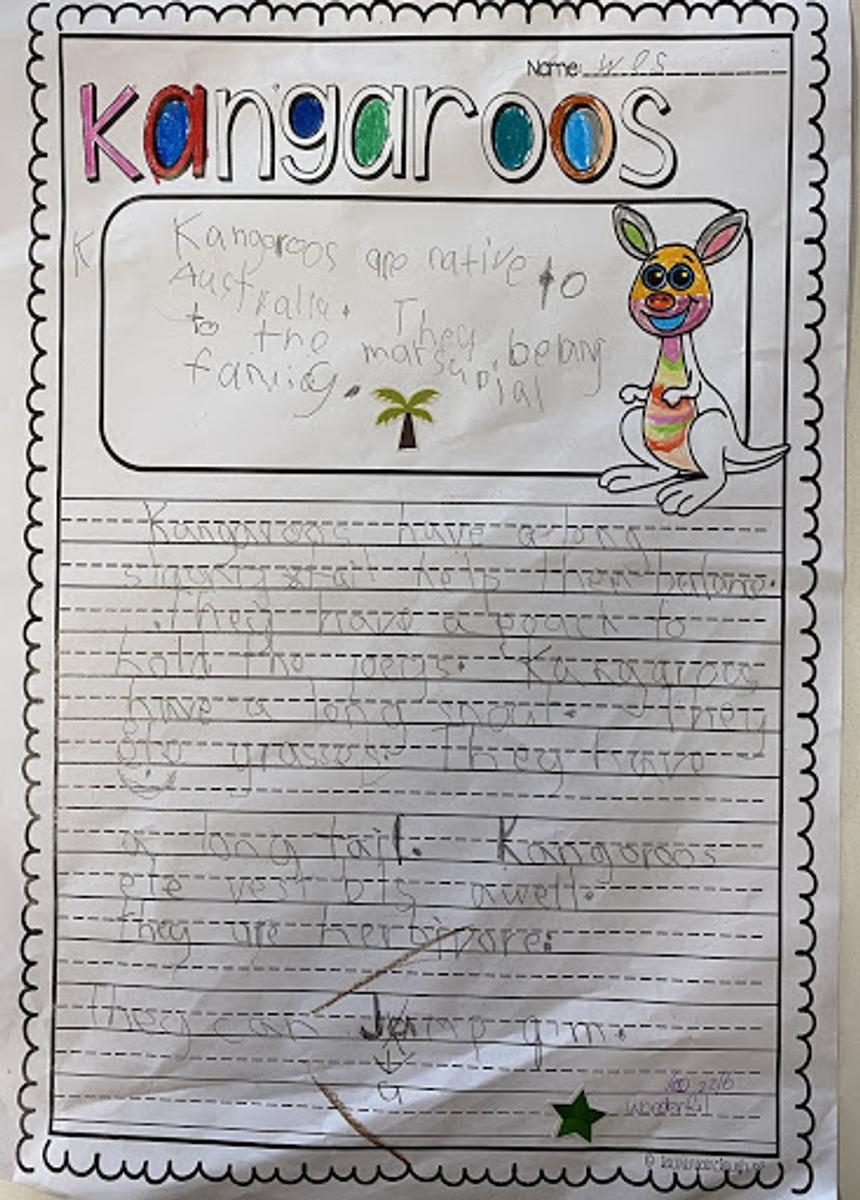 Name: Wes
Kangaroos
K
Kangaroos are native to
Australia. They belong
to the marsupial
family.
Kangaroos have a long
tail help them
They have a poach to
hold the joeys. Kangaroos
have a long snout. They
ete grasses. They have
a long tail. Kangaroos
ete awell.
they are herbivore.
They can Jamp 9m.
u
Wonderful